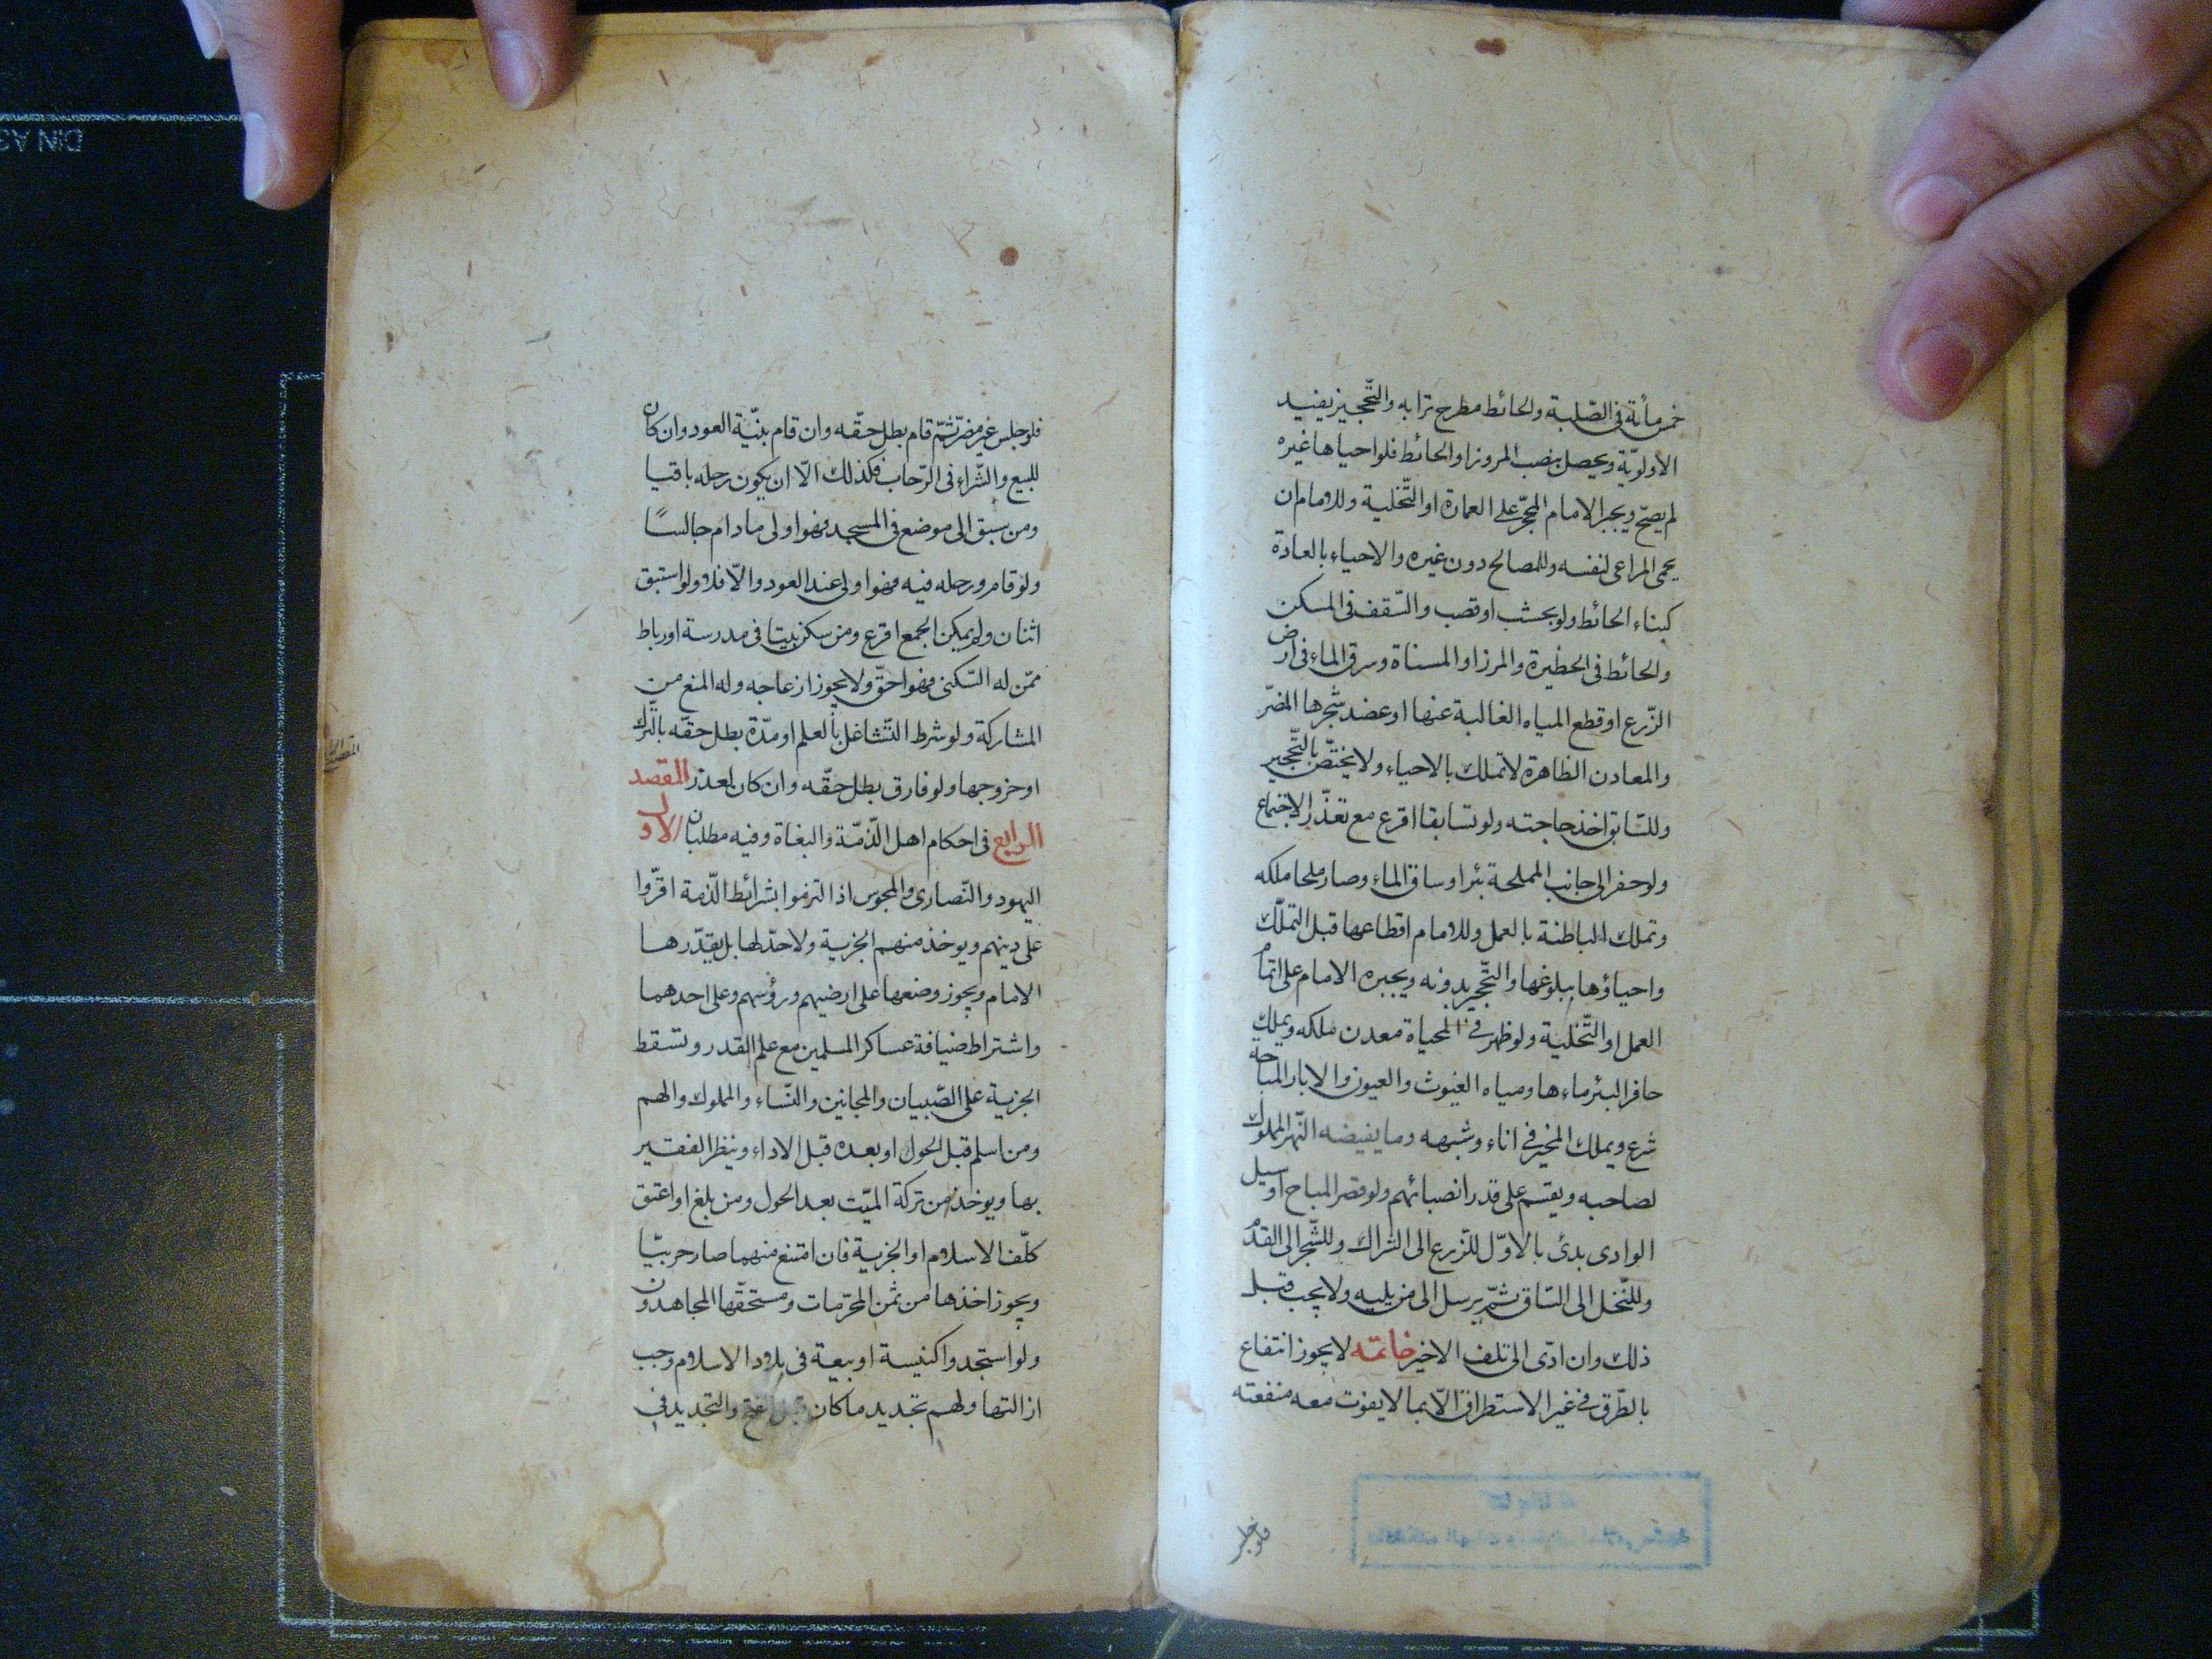 خمس مأئة فى الصّلبة والحائط مطرح ترابه والتّحجيز يفيد
الاولويّة ويحصل بنصب المروز او الحائط فلو احياها غيره
لم يصحّ ويجبر الامام المحجّر على العمارة او التّخلية وللامام ان
يحمى المراعى لنفسه وللمصالح دون غيره والاحياء بالعادة
كبناء الحائط ولو بخشب او قصب والسّقف فى المسكن
والحائط فى الحظيرة والمرز او المسناة وسوق الماء فى ارض
الزّرع او قطع المياه الغالبة عنها او عضد شجرها المضرّ
والمعادن الظاهرة لا تملك بالاحياء ولا يختصّ بالتّحجير
وللسّابق اخذ حاجته ولو تسابقا اقرع مع تعذّر الاجتماع
ولو حفر الى جانب المملحة بئرا وساق الماء وصار ملحا ملكه
وتملك الباطنة بالعمل وللامام اقطاعها قبل التملّك
واحياؤها ببلوغها والتّحجير بدونه ويجبره الامام على اتمام
العمل او التّخلية ولو ظهر فى المحياة معدن ملكه ويملك
حافر البئر ماءها ومياه الغيوث والعيون والابار المباحة
شرع ويملك المخير فى اناء وشبهه وما يفيضه النّهر المملوك
لصاحبه ويقسم على قدر انصبائهم ولو قصر المباح او سيل
الوادى بدئ بالاوّل للزّرع الى الشراك وللشّجر الى القدم
وللنّخل الى السّاق ثمّ يرسل الى من يليه ولا يجب قبل
ذلك وان ادّى الى تلف الاخير خاتمه لا يجوز انتفاع
بالطّرق فى غير الاستطراق الّا بما لا يفوت معه منفعته
فلو جلس
فلو جلس غير مضرّ ثمّ قام بطل حقّه وان قام بنيّة العود وان كان
للبيع والشّراء فى الرّحاب فكذلك الّا ان يكون رحله باقيا
ومن سبق الى موضع فى المسجد فهو اولى ما دام جالسًا
ولو قام ورحله فيه فهو اولى عند العود والّا فلا ولو استبق
اثنان ولم يمكن الجمع اقرع ومن سكن بيتا فى مدرسة او رباط
ممّن له السّكنى فهو احقّ ولا يجوز ازعاجه وله المنع من
المشاركة ولو شرط التّشاغل بالعلم او مدّة بطل حقّه بالتّرك
او خروجها ولو فارق بطل حقّه وان كان لعذر المقصد
الرابع فى احكام اهل الّذمّة والبغاة وفيه مطلبان الاول
اليهود والنّصارى والمجوس اذا التزموا بشرائط الّذمة اقرّوا
على دينهم ويوخذ منهم الجزية ولا حدّ لها بل يقدّرها
الامام ويجوز وضعها على ارضيهم ورؤسهم وعلى احدهما
واشتراط ضيافة عساكر المسلمين مع علم القدر وتسقط
الجزية على الصّبيان والمجانين والنّساء والمملوك والهم
ومن اسلم قبل الحول او بعده قبل الاداء وينظر الفقير
بها ويوخذ من تركة الميّت بعد الحول ومن بلغ او اعتق
كلّف الاسلام او الجزية فان امتنع منهما صار حربيّا
ويجوز اخذها من ثمن المحرّمات ومستحقّها المجاهدون
ولو استجدوا كنيسة او بيعة فى بلاد الاسلام وجب
ازالتها ولهم تجديد ما كان قبل الفتح والتجديد فى